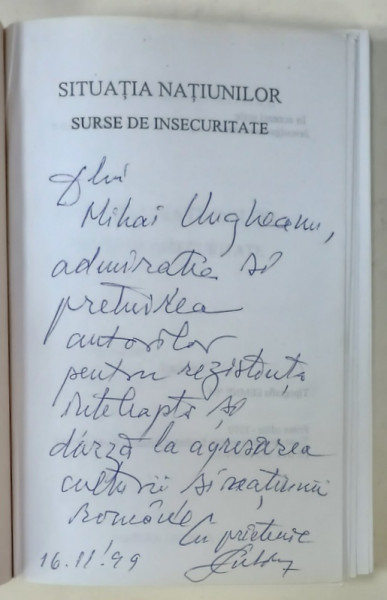 SITUAȚIA NAȚIUNILOR
SURSE DE INSECURITATE
Dlui
Mihai Ungheanu,
admirația și
prețuirea
autorilor
pentru rezistența
înțeleaptă și
dârză la agresarea
culturii și națiunii
române
Cu prietenie
16.11.'99